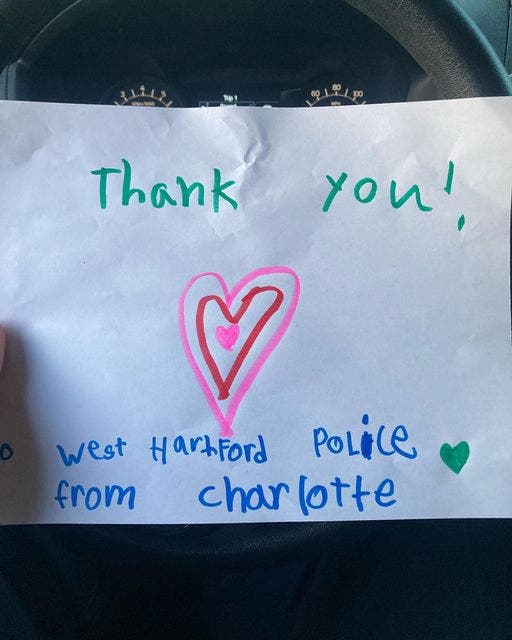 3 4 5 60 80 100
Thank you!
o West HartFord PoLice
from charlotte